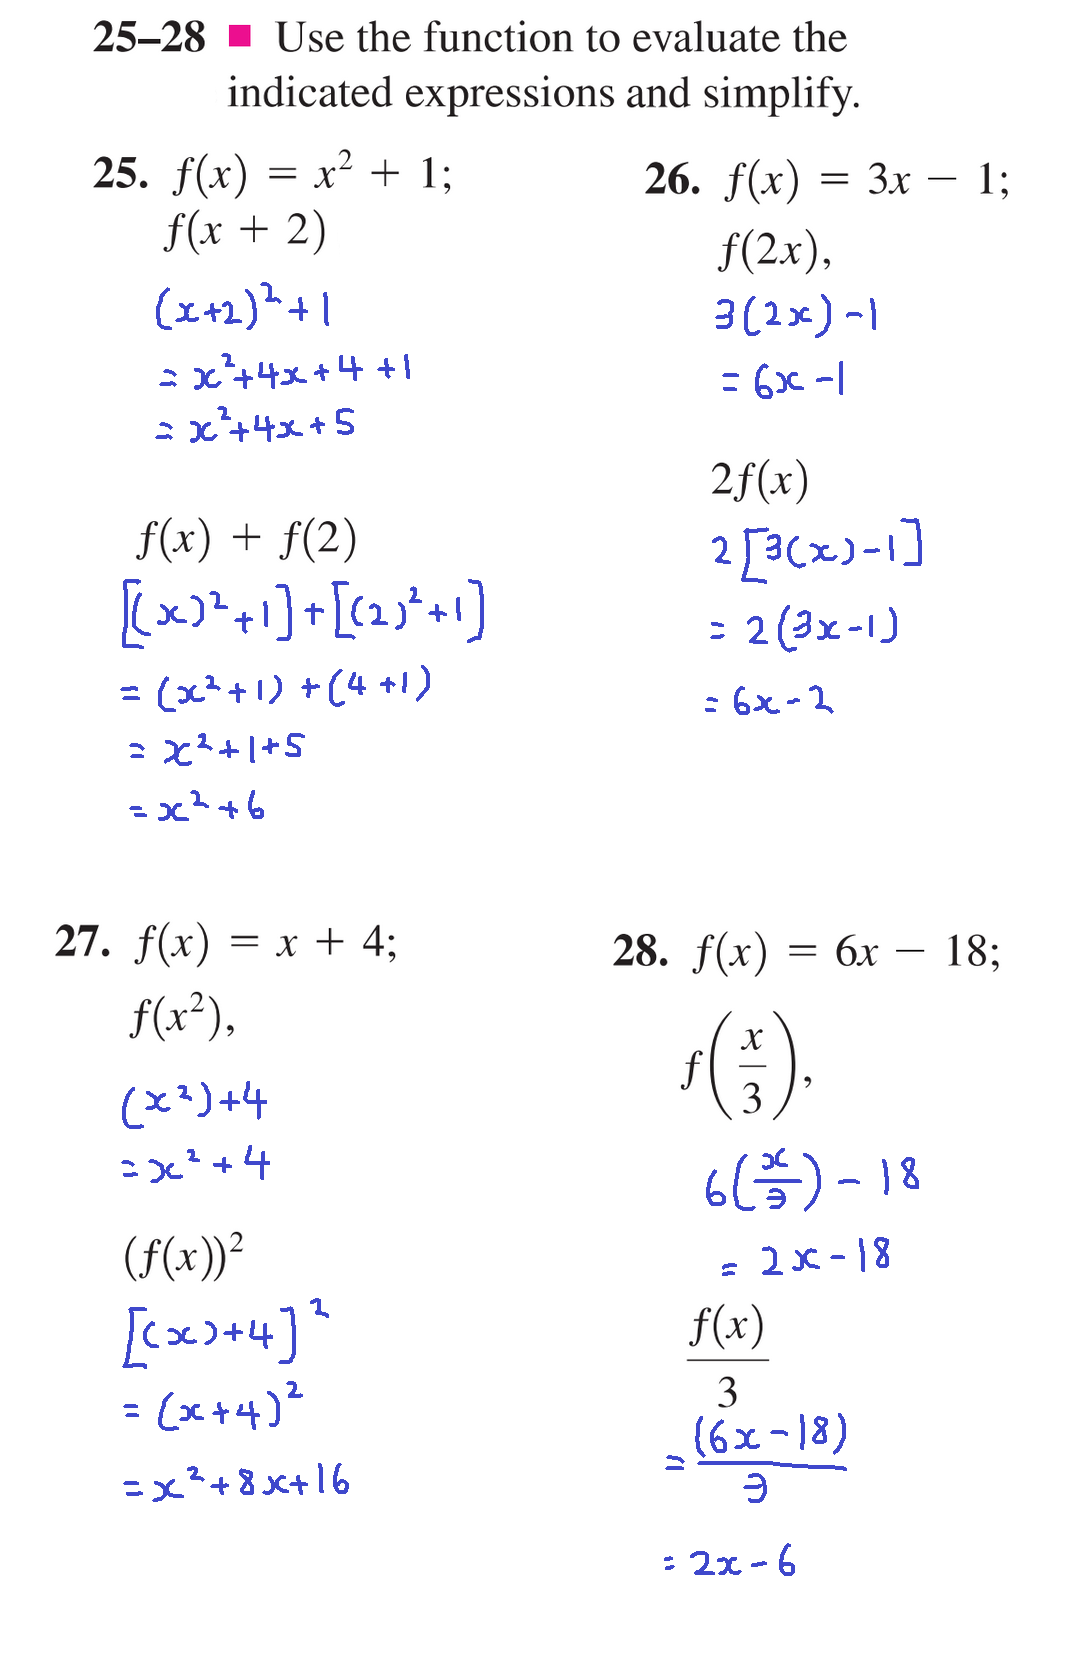 25–28 ■ Use the function to evaluate the
indicated expressions and simplify.
25. f(x) = x² + 1;
f(x + 2)
(x+2)²+1
= x²+4x+4+1
= x²+4x+5
f(x) + f(2)
[(x)²+1]+[(2)²+1]
= (x²+1)+(4+1)
= x²+1+5
= x²+6
26. f(x) = 3x − 1;
f(2x),
3(2x)-1
= 6x-1
2f(x)
2[3(x)-1]
= 2(3x-1)
= 6x-2
27. f(x) = x + 4;
f(x²),
(x²)+4
= x²+4
(f(x))²
[(x)+4]²
= (x+4)²
= x²+8x+16
28. f(x) = 6x − 18;
f(x/3),
6(x/3)-18
= 2x-18
f(x)/3
= (6x-18)/3
= 2x-6